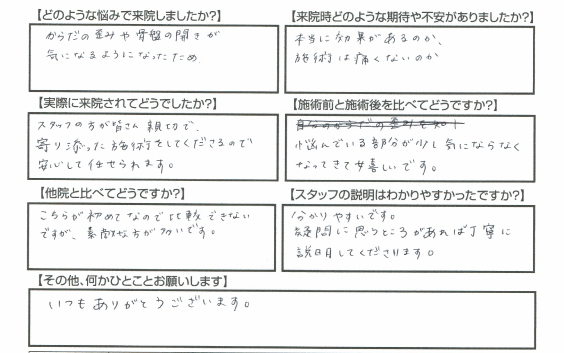 【どのような悩みで来院しましたか?】
からだの歪みや骨盤の開きが
気になるようになったため
【来院時どのような期待や不安がありましたか?】
本当に効果があるのか、
施術は痛くないのか
【実際に来院されてどうでしたか?】
スタッフの方が皆さん親切で、
寄り添った施術をしてくださるので
安心して任せられます。
【施術前と施術後を比べてどうですか?】
自分のからだの歪みを知り
悩んでいる部分が少し気にならなく
なってきて嬉しいです。
【他院と比べてどうですか?】
こちらが初めてなので比較できない
ですが、素敵な方が多いです。
【スタッフの説明はわかりやすかったですか?】
分かりやすいです。
疑問に思うところがあれば丁寧に
説明してくださります。
【その他、何かひとことお願いします】
いつもありがとうございます。